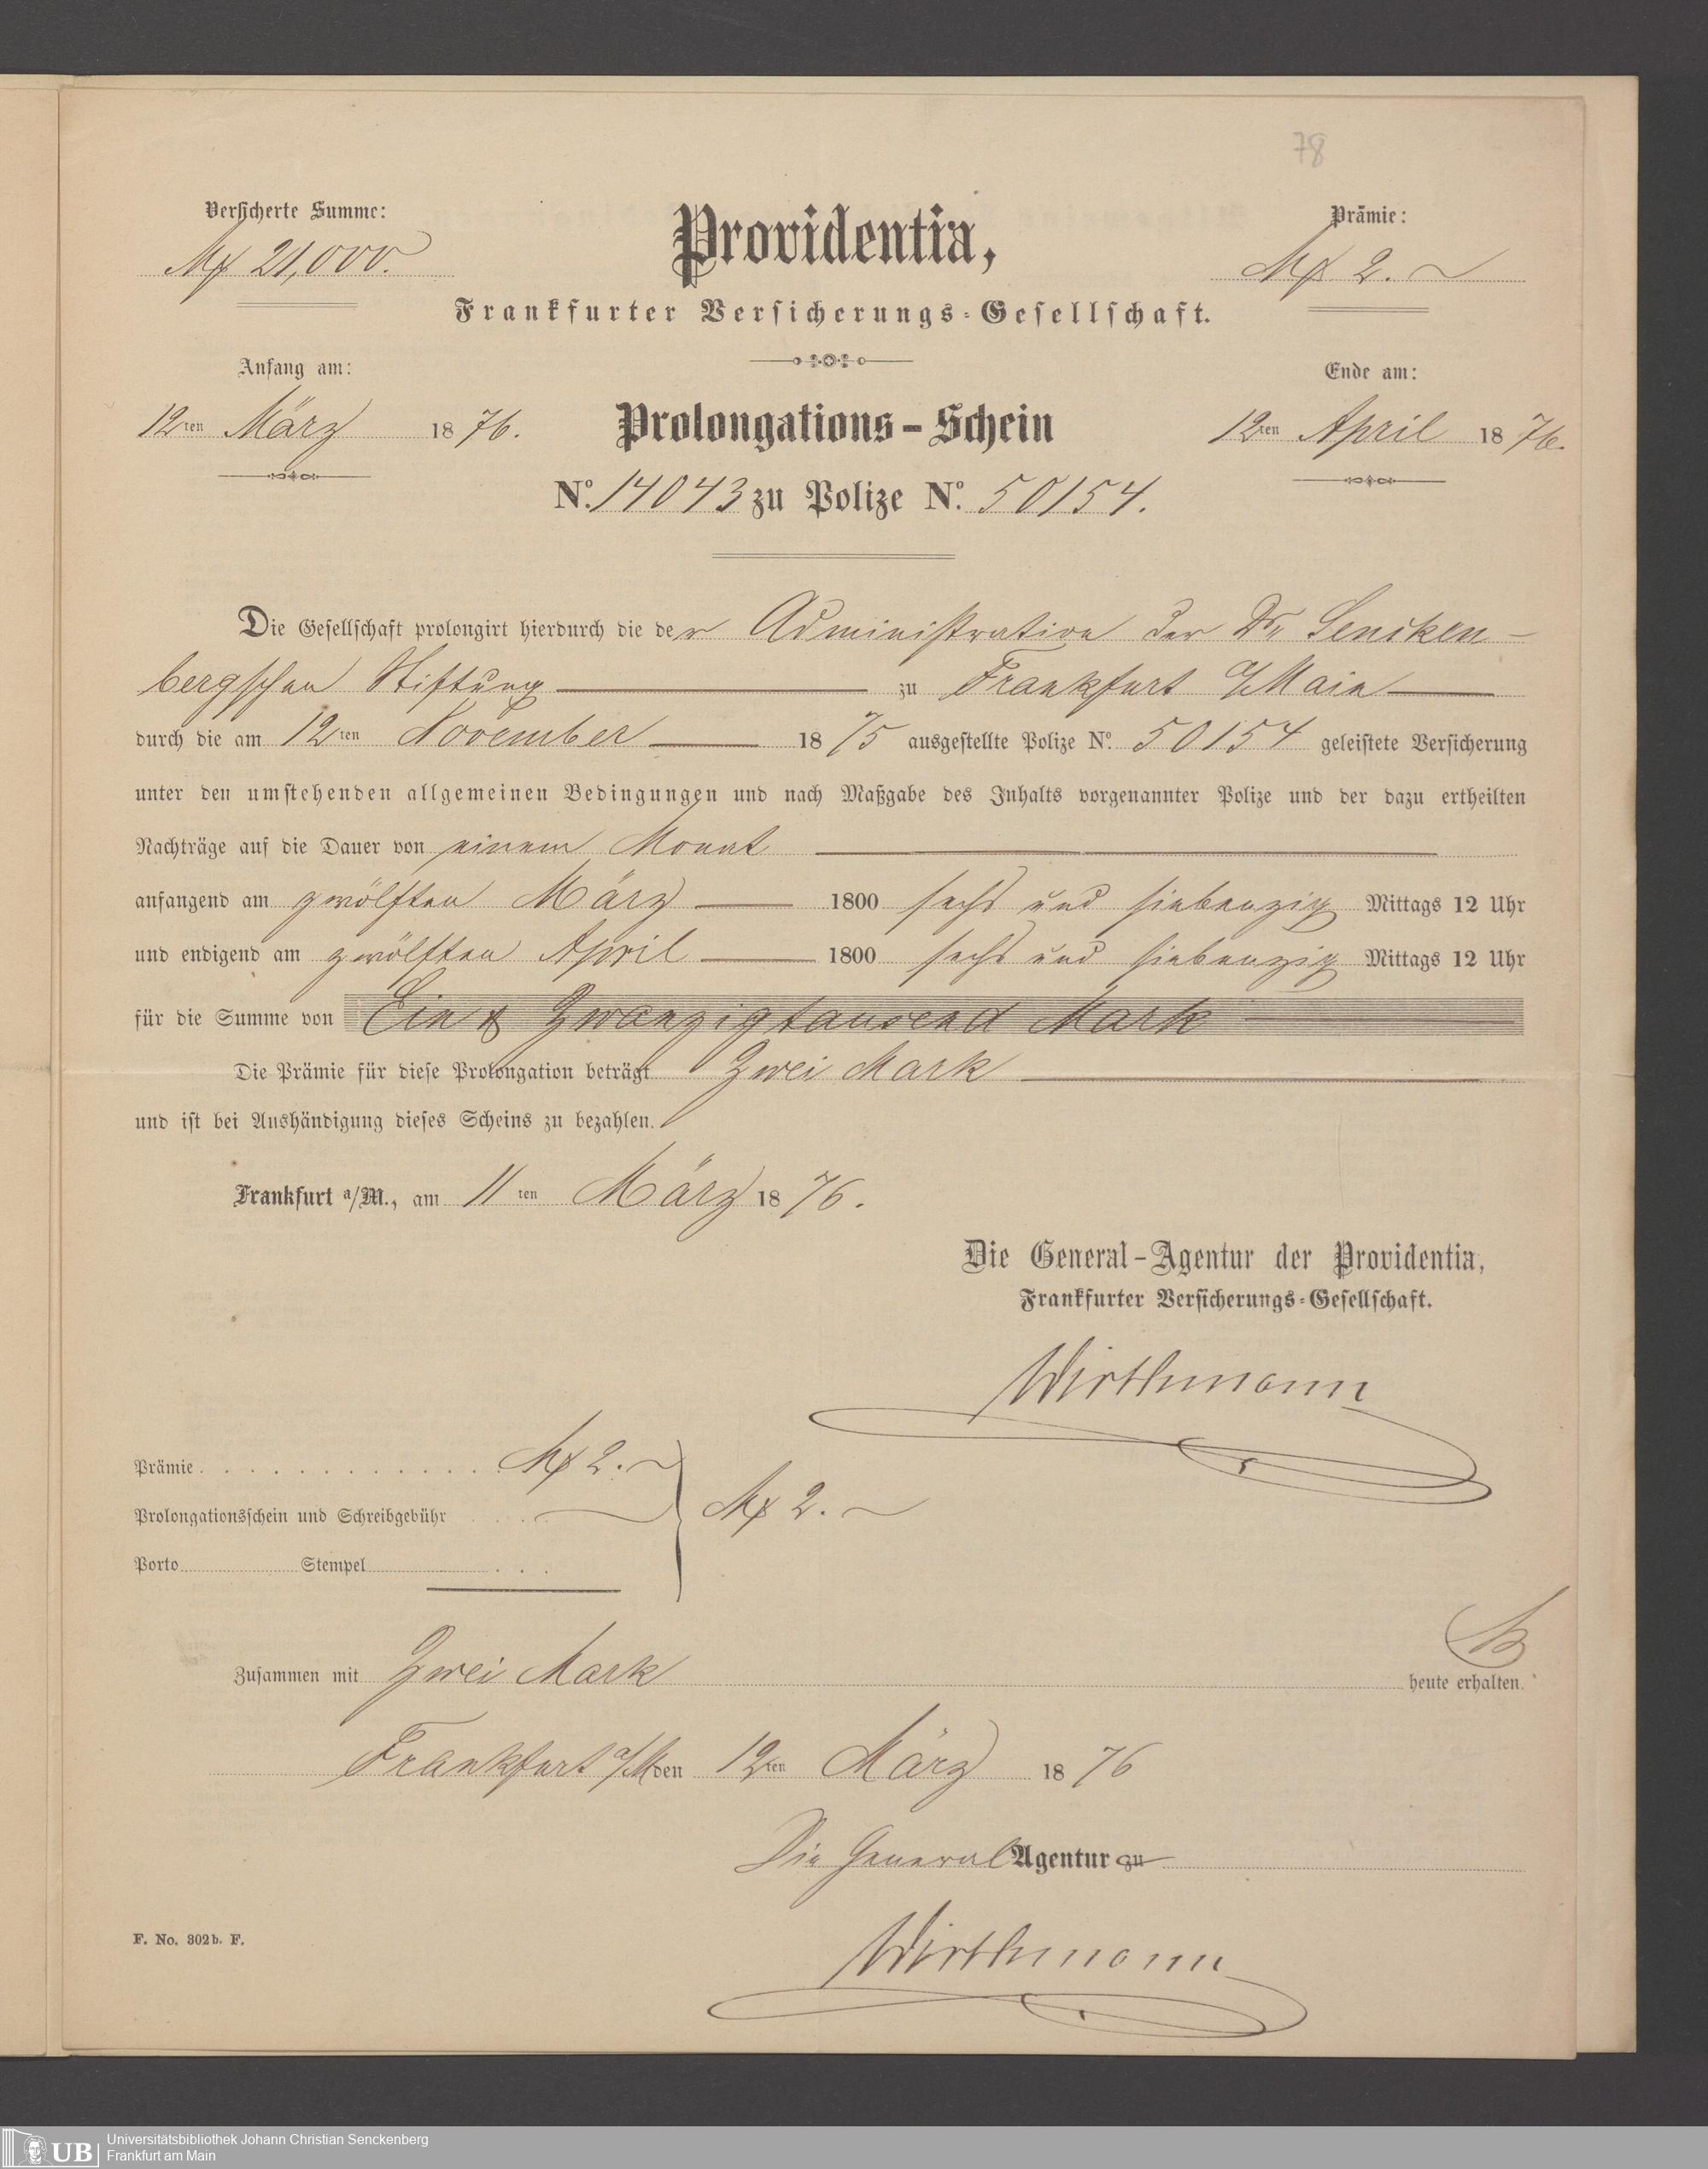 78
Versicherte Summe:
Mk 21,000.
Providentia,
Prämie:
Mk 2. ~
Frankfurter Versicherungs-Gesellschaft.
Anfang am:
12ten März 1876.
Ende am:
12ten April 1876.
Prolongations-Schein
No. 14043 zu Polize No. 50154.
Die Gesellschaft prolongirt hierdurch die der Administration der Dr. Sencken-
bergschen Stiftung zu Frankfurt a/Main
durch die am 12ten November 1875 ausgestellte Polize No. 50154 geleistete Versicherung
unter den umstehenden allgemeinen Bedingungen und nach Maßgabe des Inhalts vorgenannter Polize und der dazu ertheilten
Nachträge auf die Dauer von einem Monat
anfangend am zwölften März 1800 sechs und siebenzig Mittags 12 Uhr
und endigend am zwölften April 1800 sechs und siebenzig Mittags 12 Uhr
für die Summe von Ein & Zwanzigtausend Mark
Die Prämie für diese Prolongation beträgt Zwei Mark
und ist bei Aushändigung dieses Scheins zu bezahlen.
Frankfurt a/M., am 11ten März 1876.
Die General-Agentur der Providentia,
Frankfurter Versicherungs-Gesellschaft.
Wirthmann
Prämie . . . . . . . . . . . . Mk 2. ~
Prolongationsschein und Schreibgebühr . . . .
Mk 2. ~
Porto Stempel . . .
Zusammen mit Zwei Mark heute erhalten.
Frankfurt a/M den 12ten März 1876
Die General Agentur zu
Wirthmann
F. No. 302 b. F.
UB
Universitätsbibliothek Johann Christian Senckenberg
Frankfurt am Main